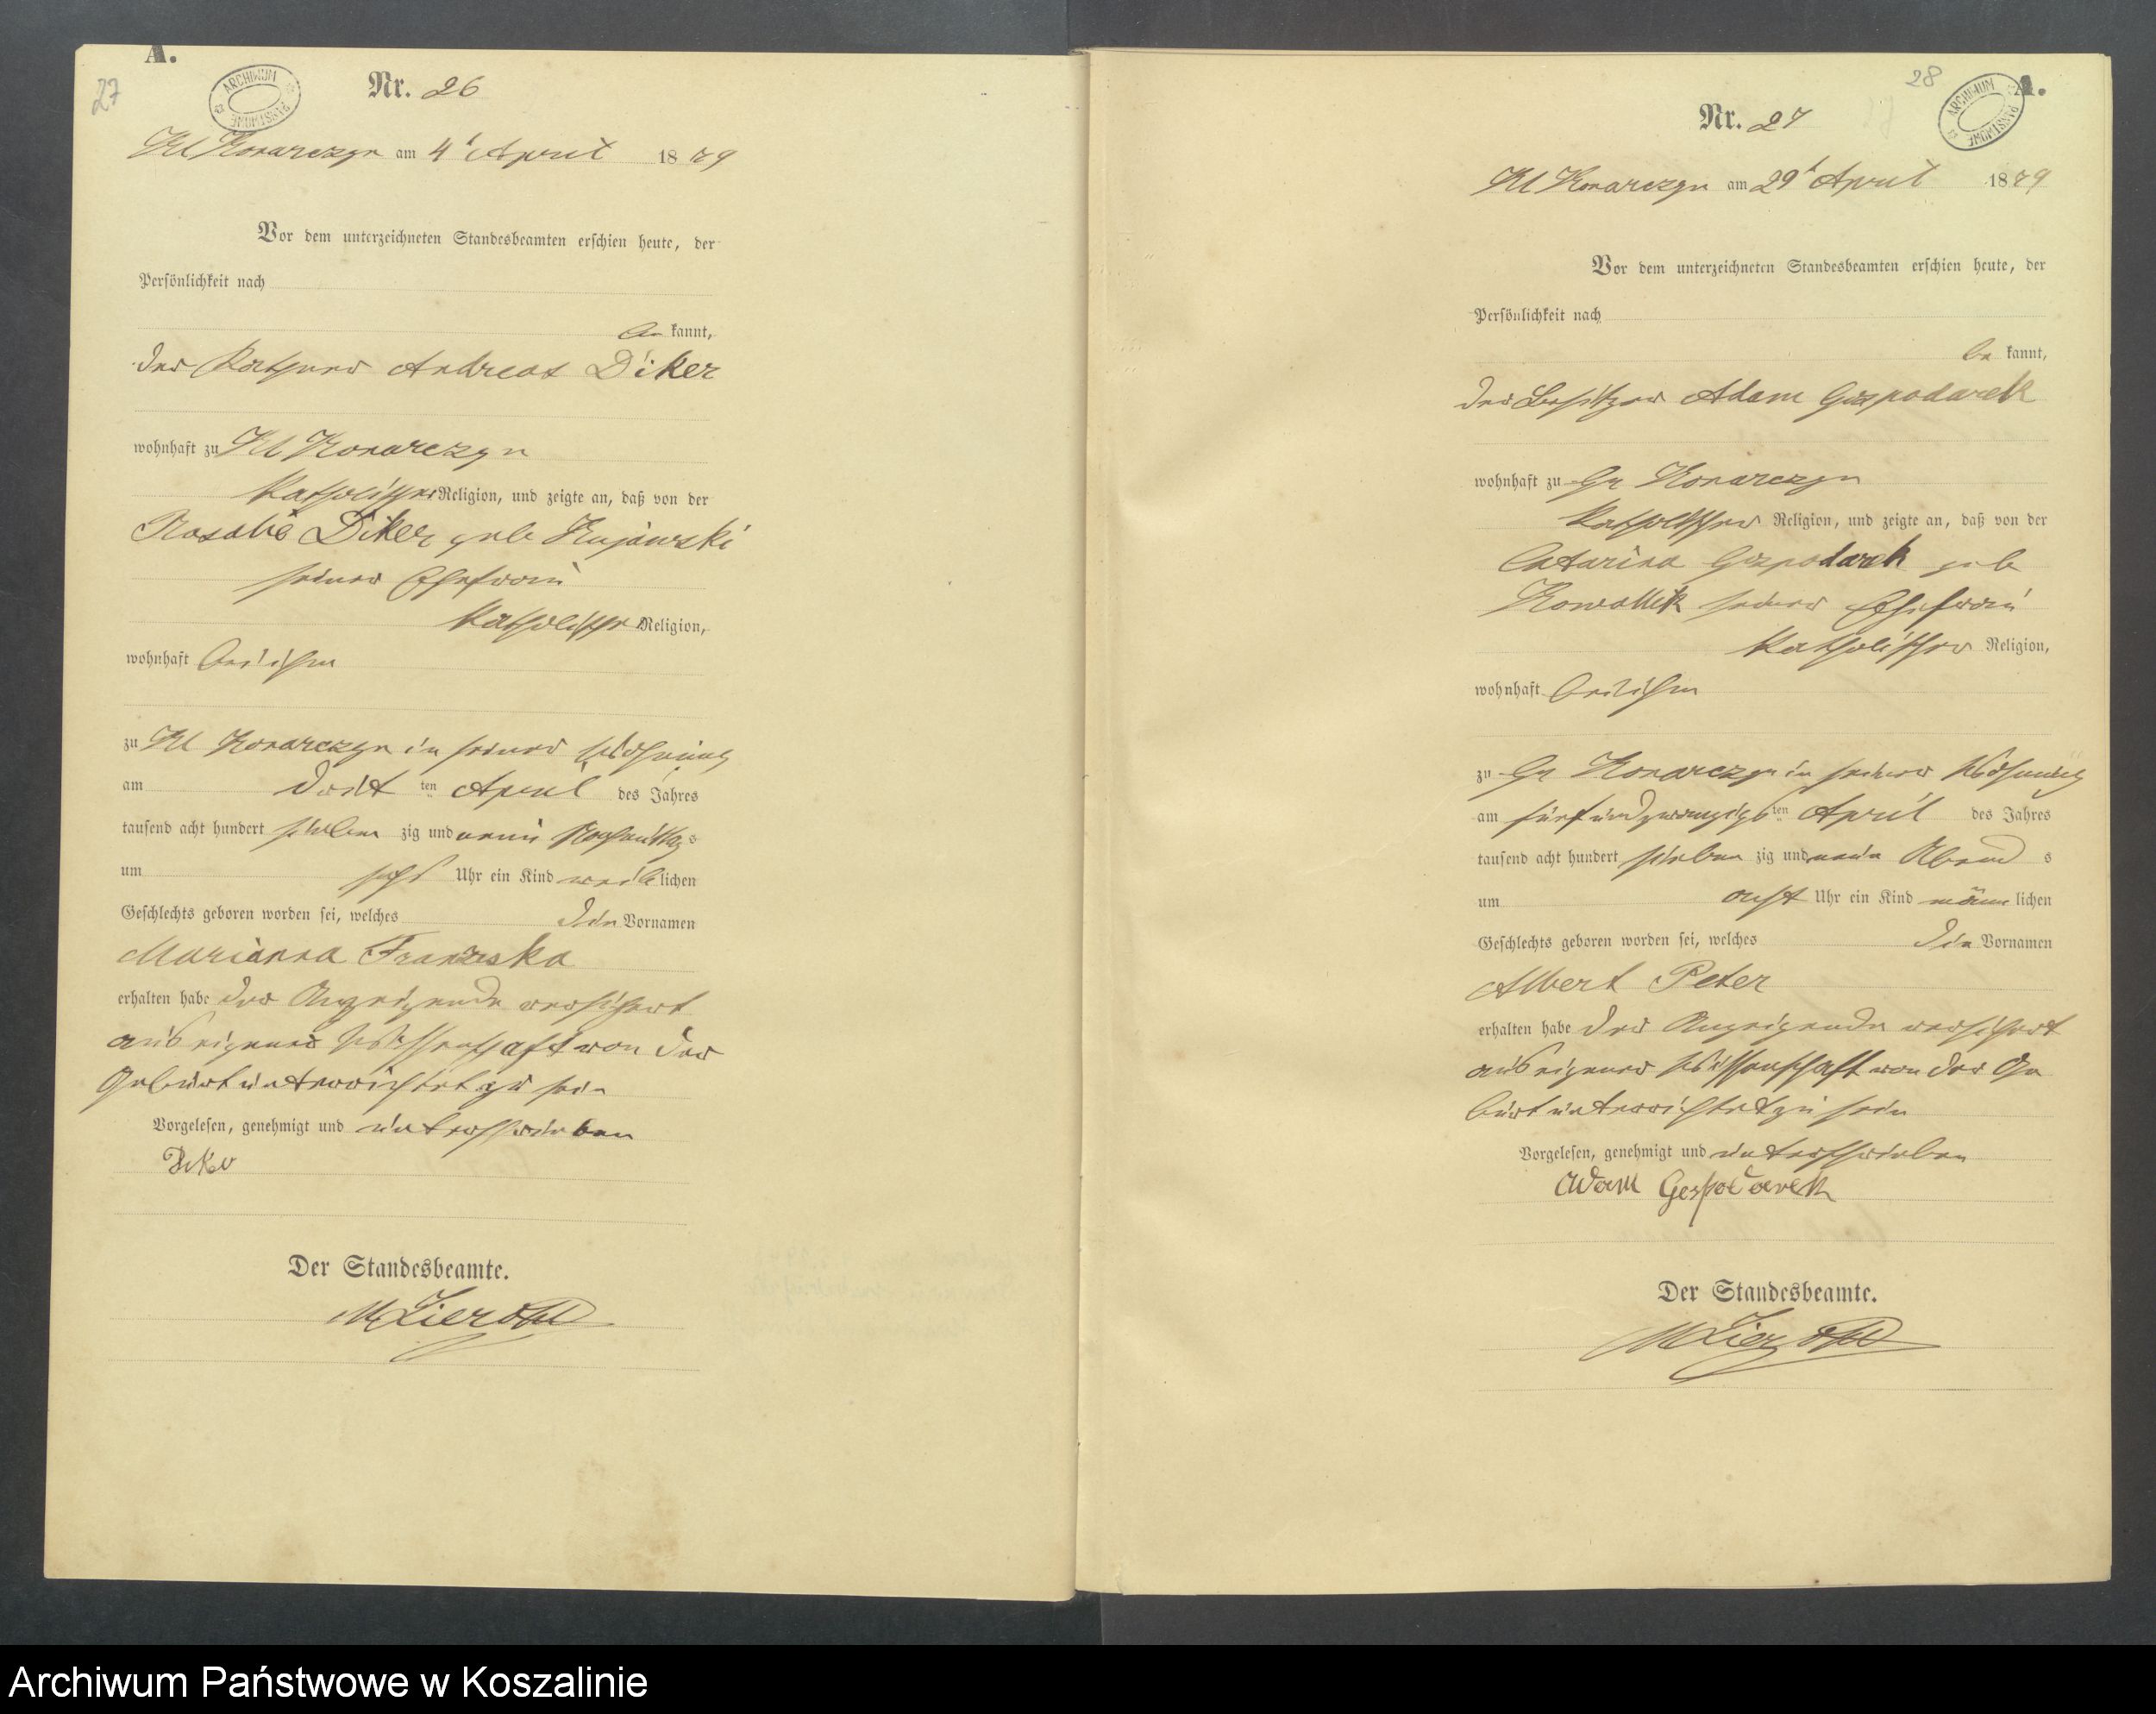 A.
27
ARCHIWUM PAŃSTWOWE
Nr. 26
Kl Konarczyn am 4t April 1879
Vor dem unterzeichneten Standesbeamten erschien heute, der
Persönlichkeit nach
be kannt,
der Käthner Andreas Diker
wohnhaft zu Kl Konarczyn
katholischer Religion, und zeigte an, daß von der
Rosalie Diker geb Kujawski
seiner Ehefrau
katholischer Religion,
wohnhaft bei ihm
zu Kl Konarczyn in seiner Wohnung
am dritten April des Jahres
tausend acht hundert sieben zig und neun Nachmittags
um sechs Uhr ein Kind weiblichen
Geschlechts geboren worden sei, welches die Vornamen
Marianna Franziska
erhalten habe der Anzeigende versichert
aus eigener Wissenschaft von der
Geburt unterrichtet zu sein
Vorgelesen, genehmigt und unterschrieben
Der Standesbeamte.
28
ARCHIWUM PAŃSTWOWE
A.
Nr. 27
Kl Konarczyn am 29t April 1879
Vor dem unterzeichneten Standesbeamten erschien heute, der
Persönlichkeit nach
be kannt,
der Besitzer Adam Gospodarek
wohnhaft zu Gr Konarczyn
katholischer Religion, und zeigte an, daß von der
Catarina Gospodarek geb
Kowallek seiner Ehefrau
katholischer Religion,
wohnhaft bei ihm
zu Gr Konarczyn in seiner Wohnung
am fünfundzwanzigsten April des Jahres
tausend acht hundert sieben zig und neun Abend s
um acht Uhr ein Kind männlichen
Geschlechts geboren worden sei, welches die Vornamen
Albert Peter
erhalten habe der Anzeigende versichert
aus eigener Wissenschaft von der Ge
burt unterrichtet zu sein
Vorgelesen, genehmigt und unterschrieben
Adam Gospodarek
Der Standesbeamte.
Archiwum Państwowe w Koszalinie